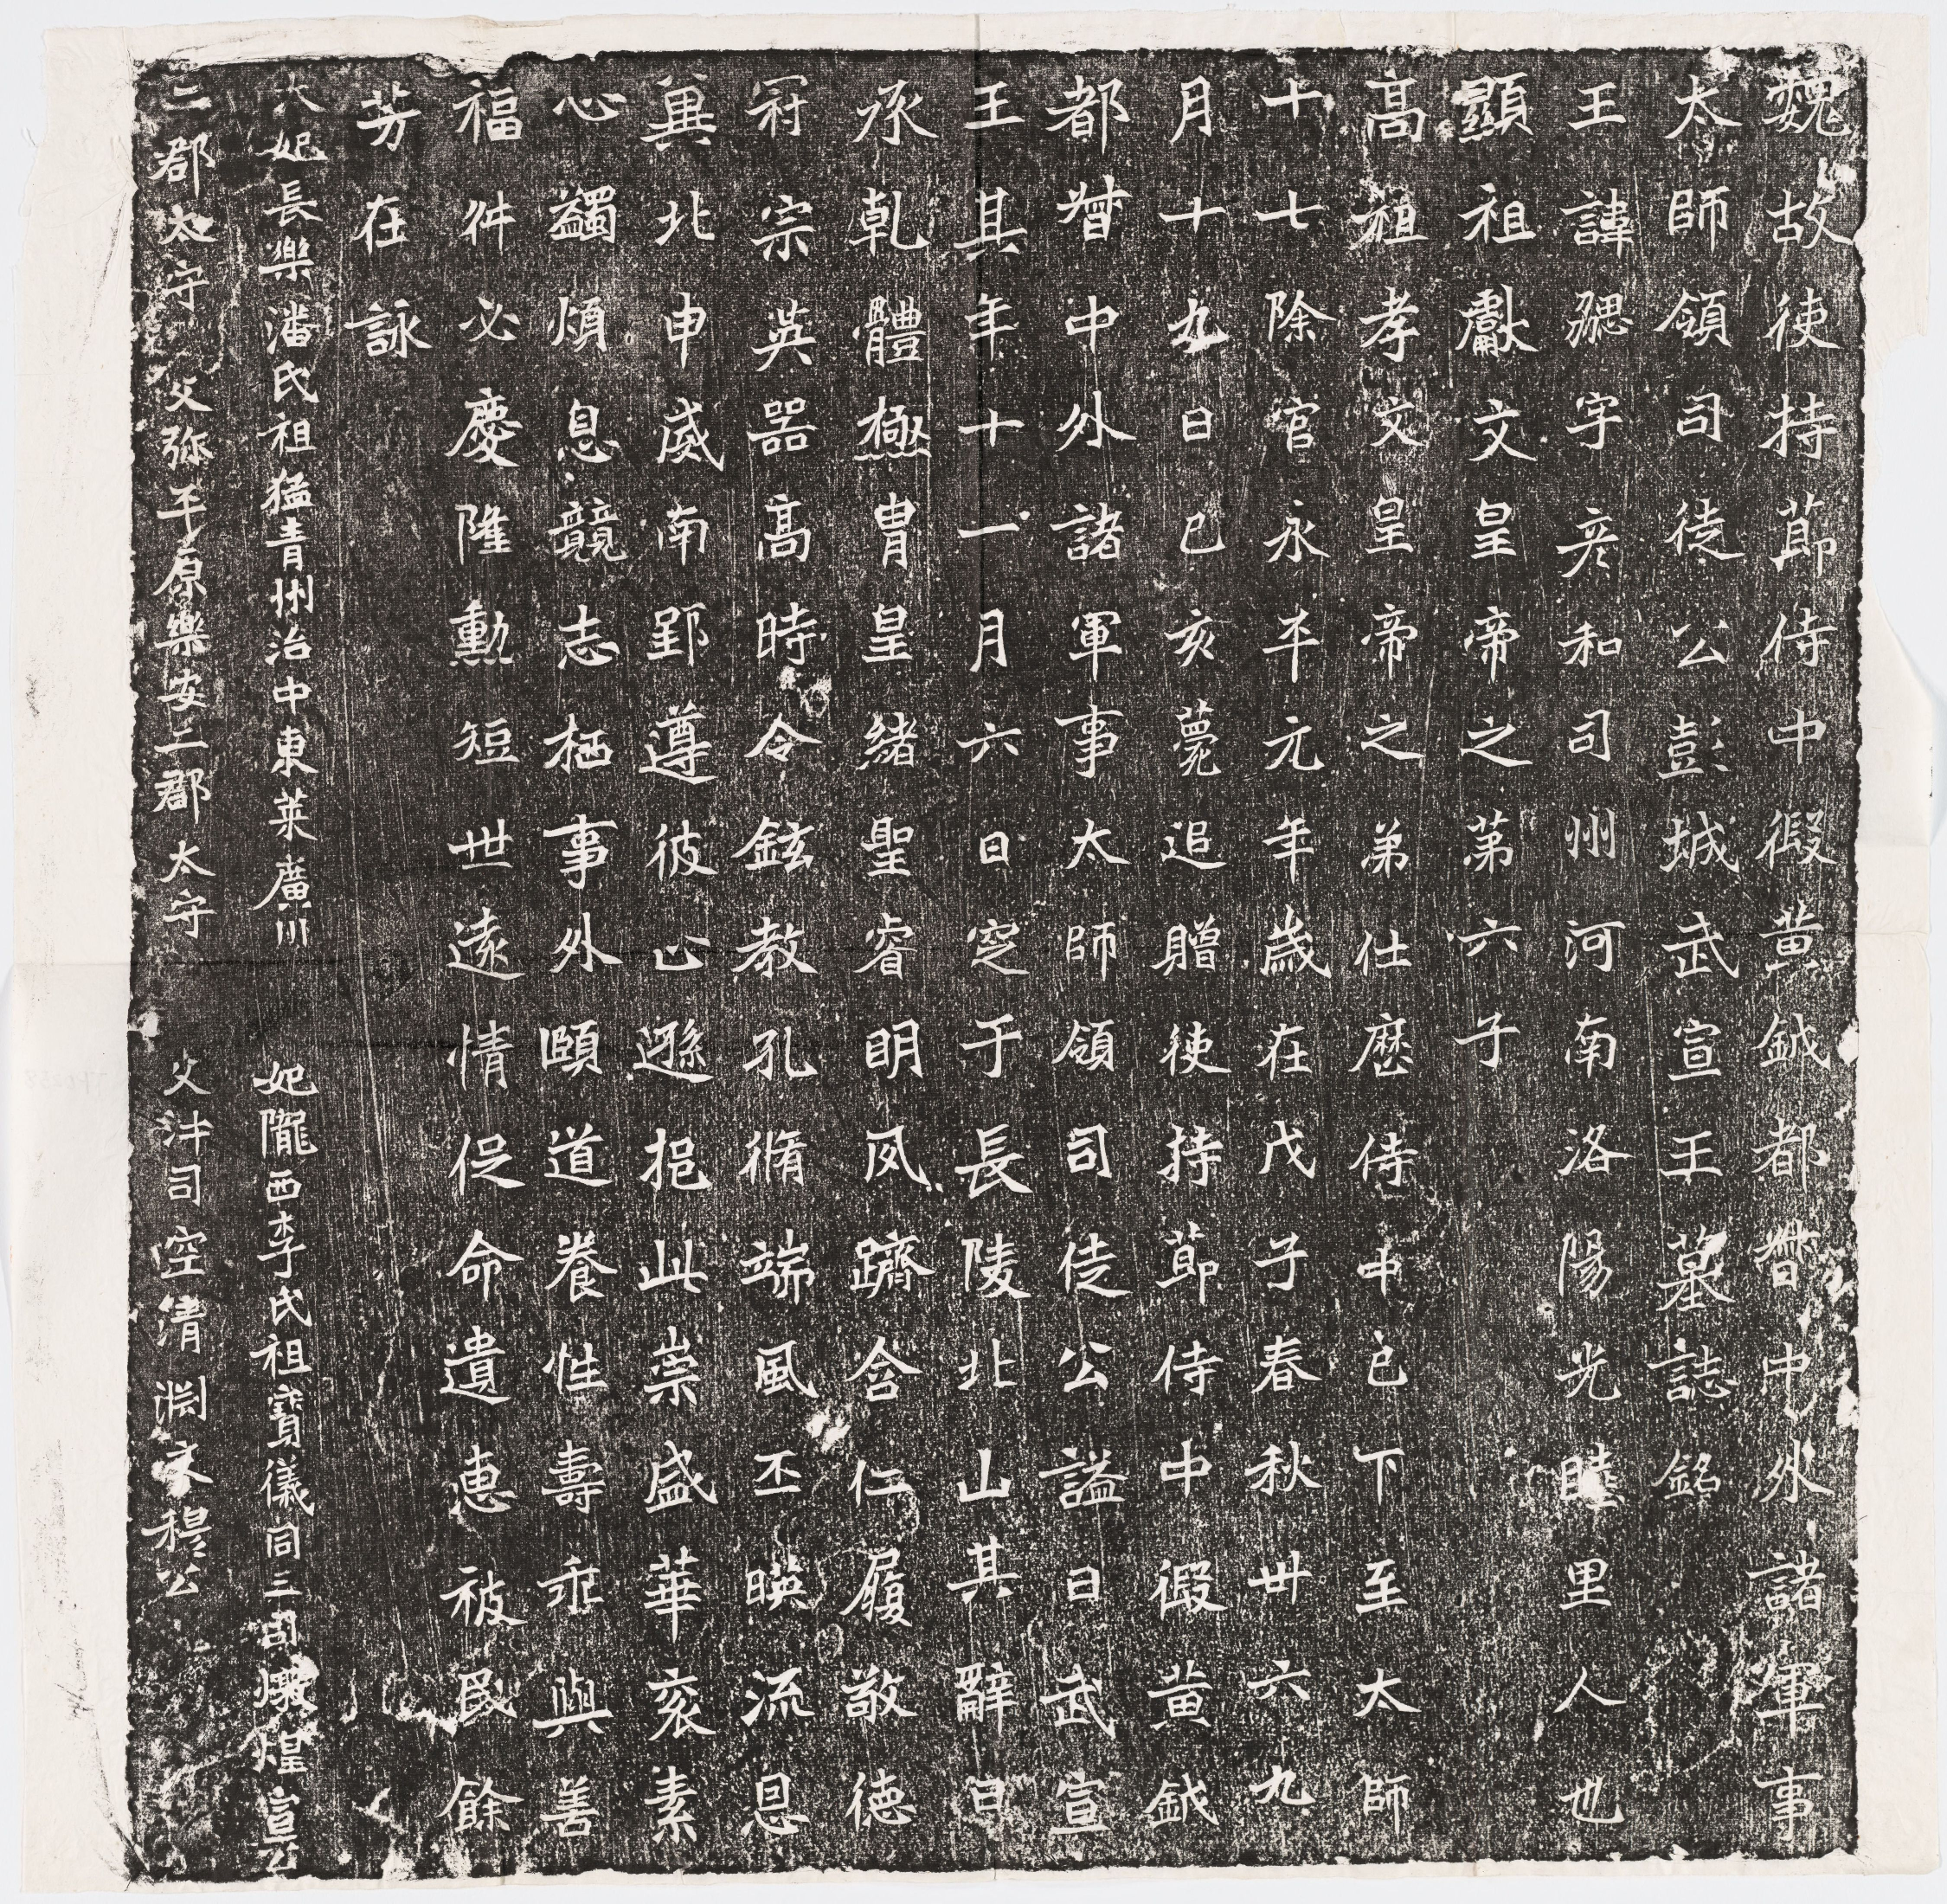 魏故使持節侍中假黄鉞都督中外諸軍事
太師領司徒公彭城武宣王墓誌銘
王諱勰字彦和司州河南洛陽光睦里人也
顯祖獻文皇帝之第六子
高祖孝文皇帝之弟仕歷侍中已下至太師
十七除官永平元年歲在戊子春秋卅六九
月十九日己亥薨追贈使持節侍中假黄鉞
都督中外諸軍事太師領司徒公謚曰武宣
王其年十一月六日窆于長陵北山其辭曰
承乾體極胄皇緒聖睿明夙躋含仁履敬德
冠宗英器高時令鉉教孔脩端風丕映流恩
冀北申威南郢遵彼止遜挹此崇盛華衮素
心蠲煩息競志栖事外頤道養性壽乖與善
福舛必慶隆勳短世遠情促命遺惠被民餘
芳在詠
太妃長樂潘氏祖猛青州治中東萊廣川
二郡太守父弥平原樂安二郡太守
妃隴西李氏祖寶儀同三司燉煌宣公
父沖司空清淵文穆公